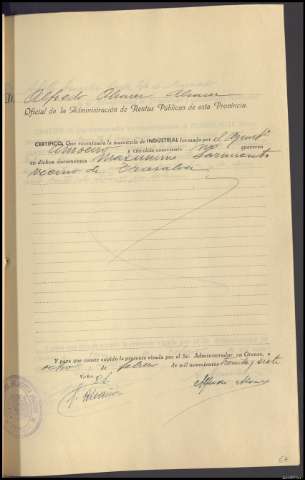 D. Alfredo Alvarez Alvarez
Oficial de la Administración de Rentas Públicas de esta Provincia.
CERTIFICO: Que examinada la matrícula de INDUSTRIAL formada por el Ayunt.º
Amoeiro y ejercicio corriente no aparece
en dichos documentos Maximino Sarmiento
vecino de Trasalba.
Y para que conste expido la presente visada por el Sr. Administrador, en Orense,
ocho de febrero de mil novecientos treinta y siete
Vicho